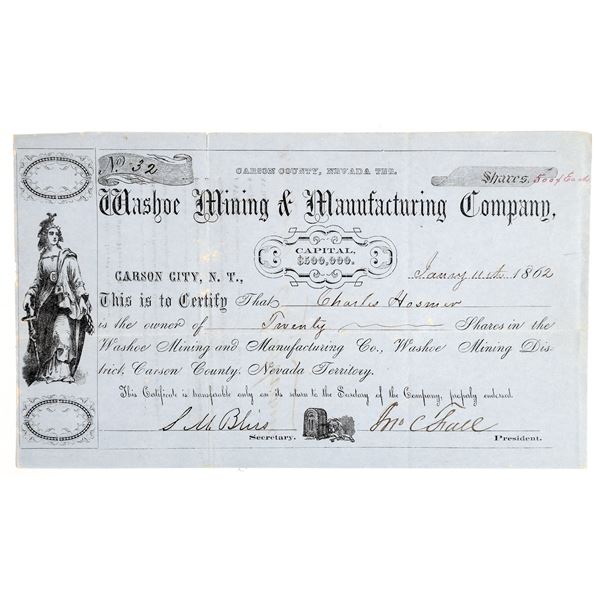 No. 32
CARSON COUNTY, NEVADA TER.
Shares, 500$ Each
Washoe Mining & Manufacturing Company,
CAPITAL,
$500,000.
CARSON CITY, N. T., Jany 11th 1862
This is to Certify That Charles Hosmer
is the owner of Twenty Shares in the
Washoe Mining and Manufacturing Co., Washoe Mining Dis-
trict, Carson County, Nevada Territory.
This Certificate is transferable only on its return to the Secretary of the Company, properly endorsed.
S. M. Bliss
Jno C Fall
Secretary.
President.